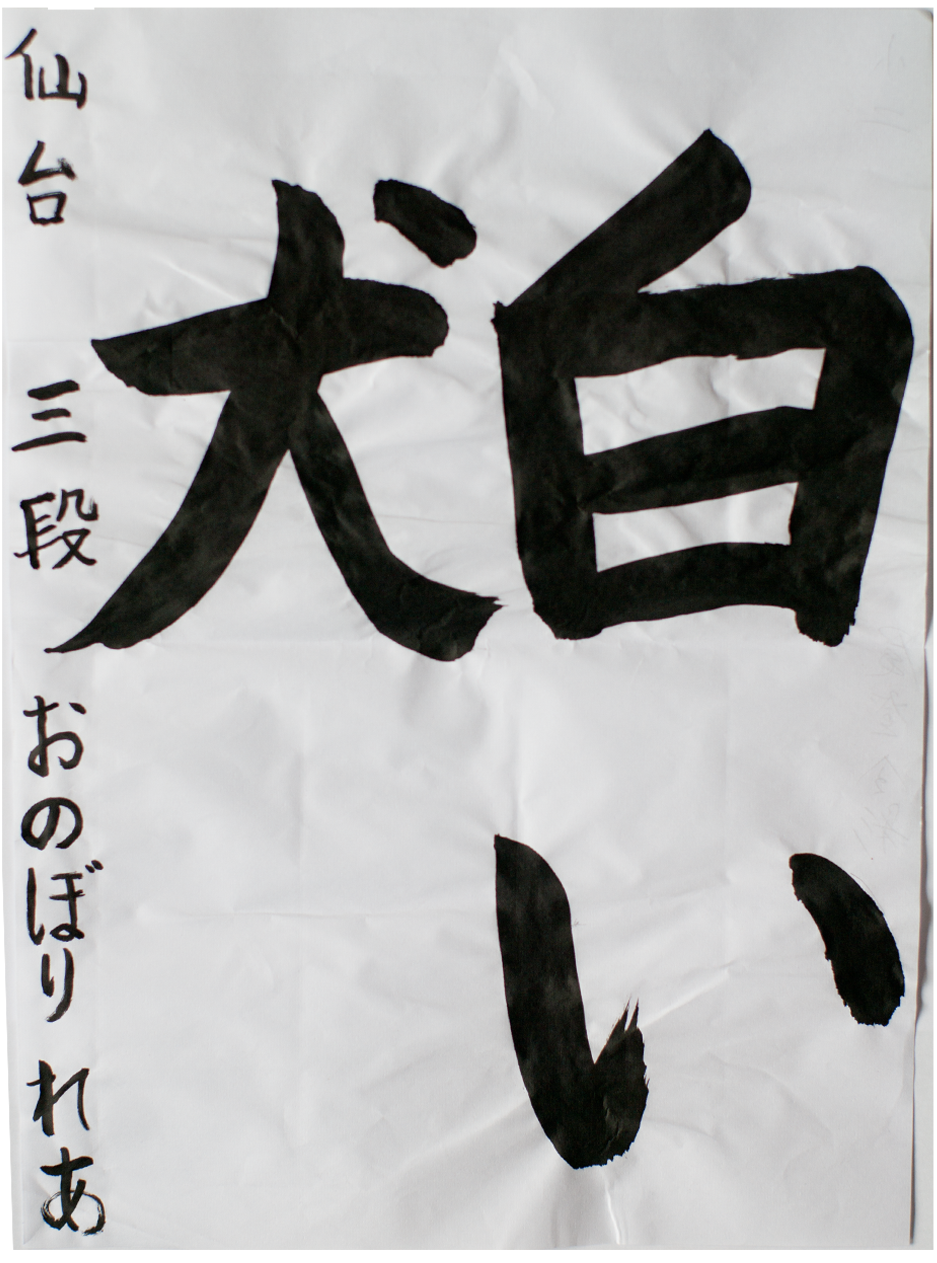 白い
犬
仙台 三段 おのぼり れあ